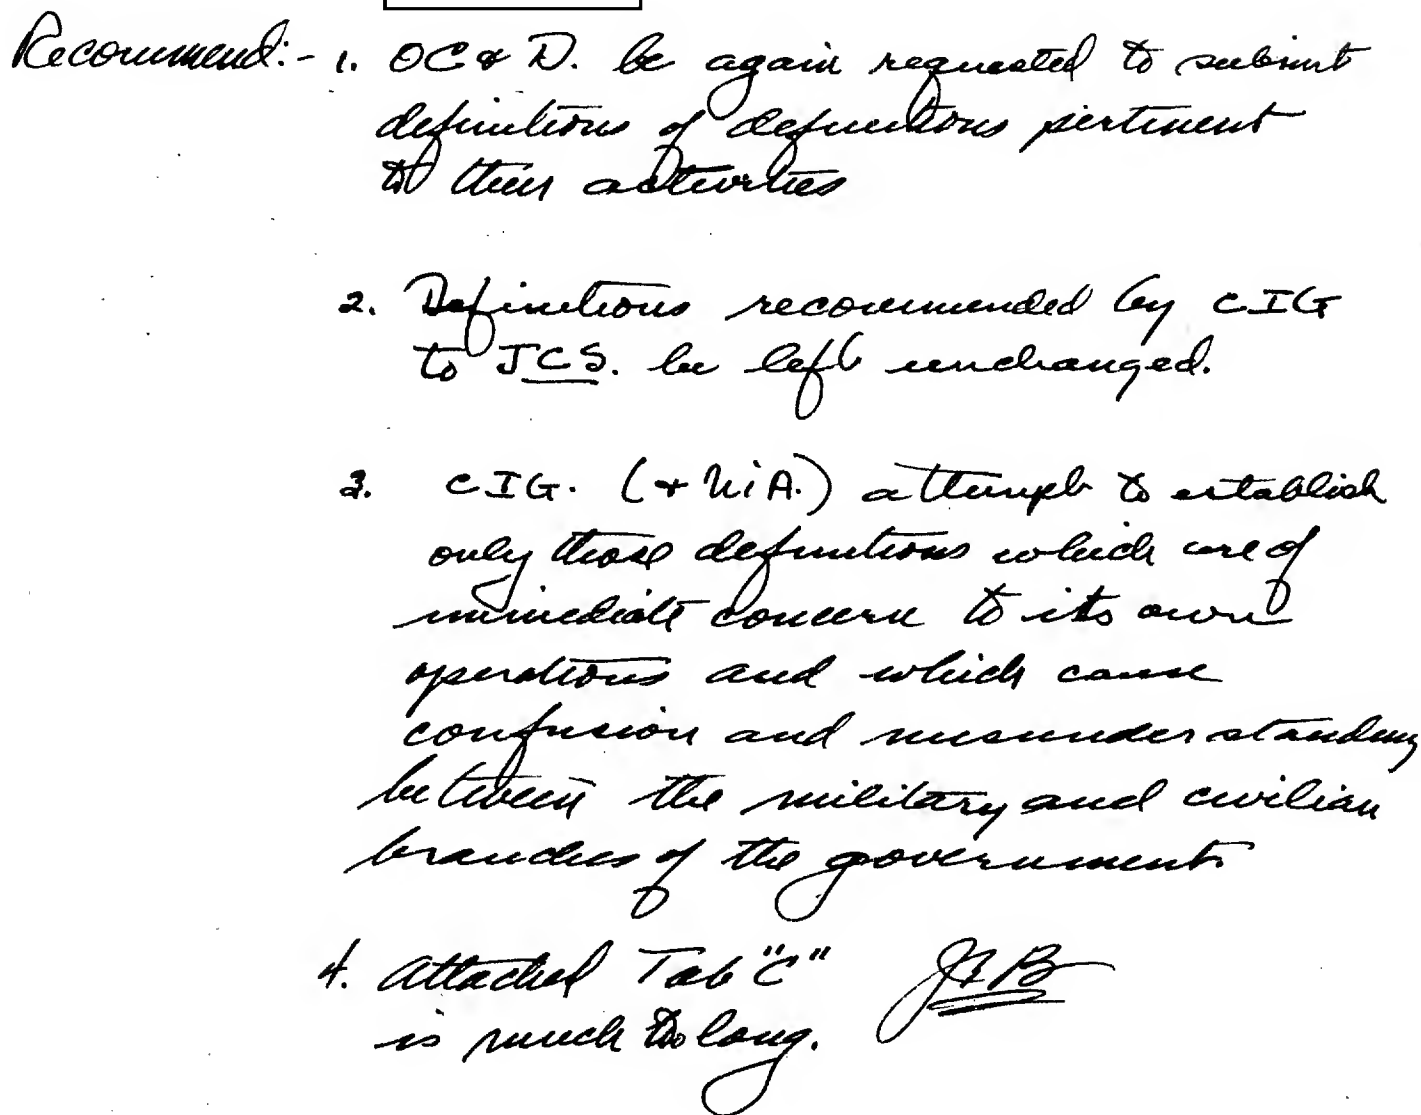 Recommend:- 1. OC & D. be again requested to submit
definitions of definitions pertinent
to their activities
2. Definitions recommended by CIG
to JCS. be left unchanged.
3. CIG. (+ NIA.) attempt to establish
only those definitions which are of
immediate concern to its own
operations and which cause
confusion and misunderstanding
between the military and civilian
branches of the government.
4. Attached Tab "C"
is much too long.
JRB